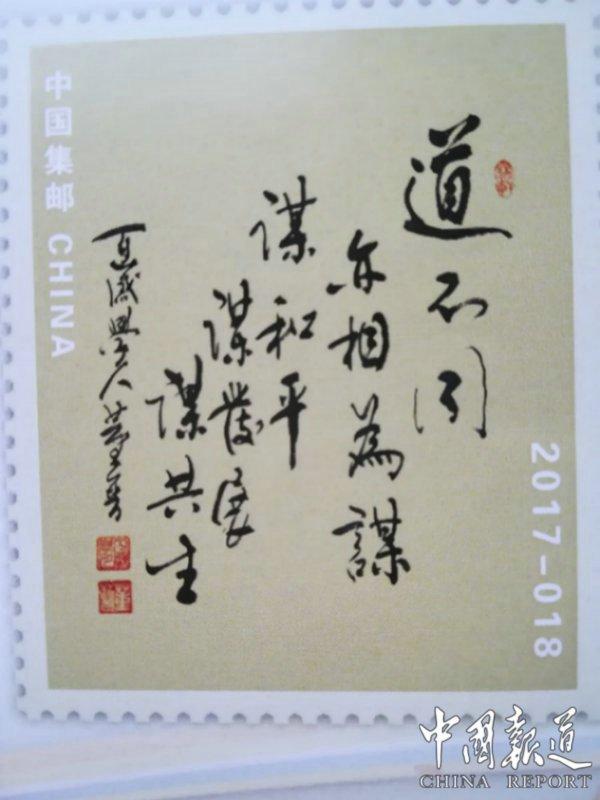 道不同
亦相為謀
谋和平
谋發展
谋共生
中国集邮 CHINA
2017-018
中國報道
CHINA REPORT